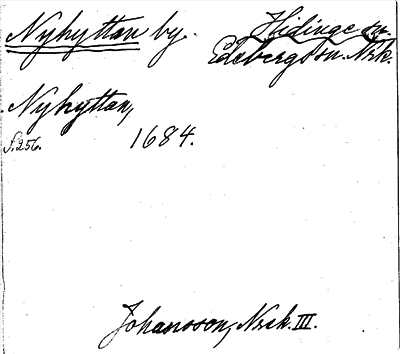 Nyhyttan by.
Hidinge sn.
Edsbergs sn. Nrk.
Nyhyttan,
S. 256. 1684.
Johansson, Nrk. III.